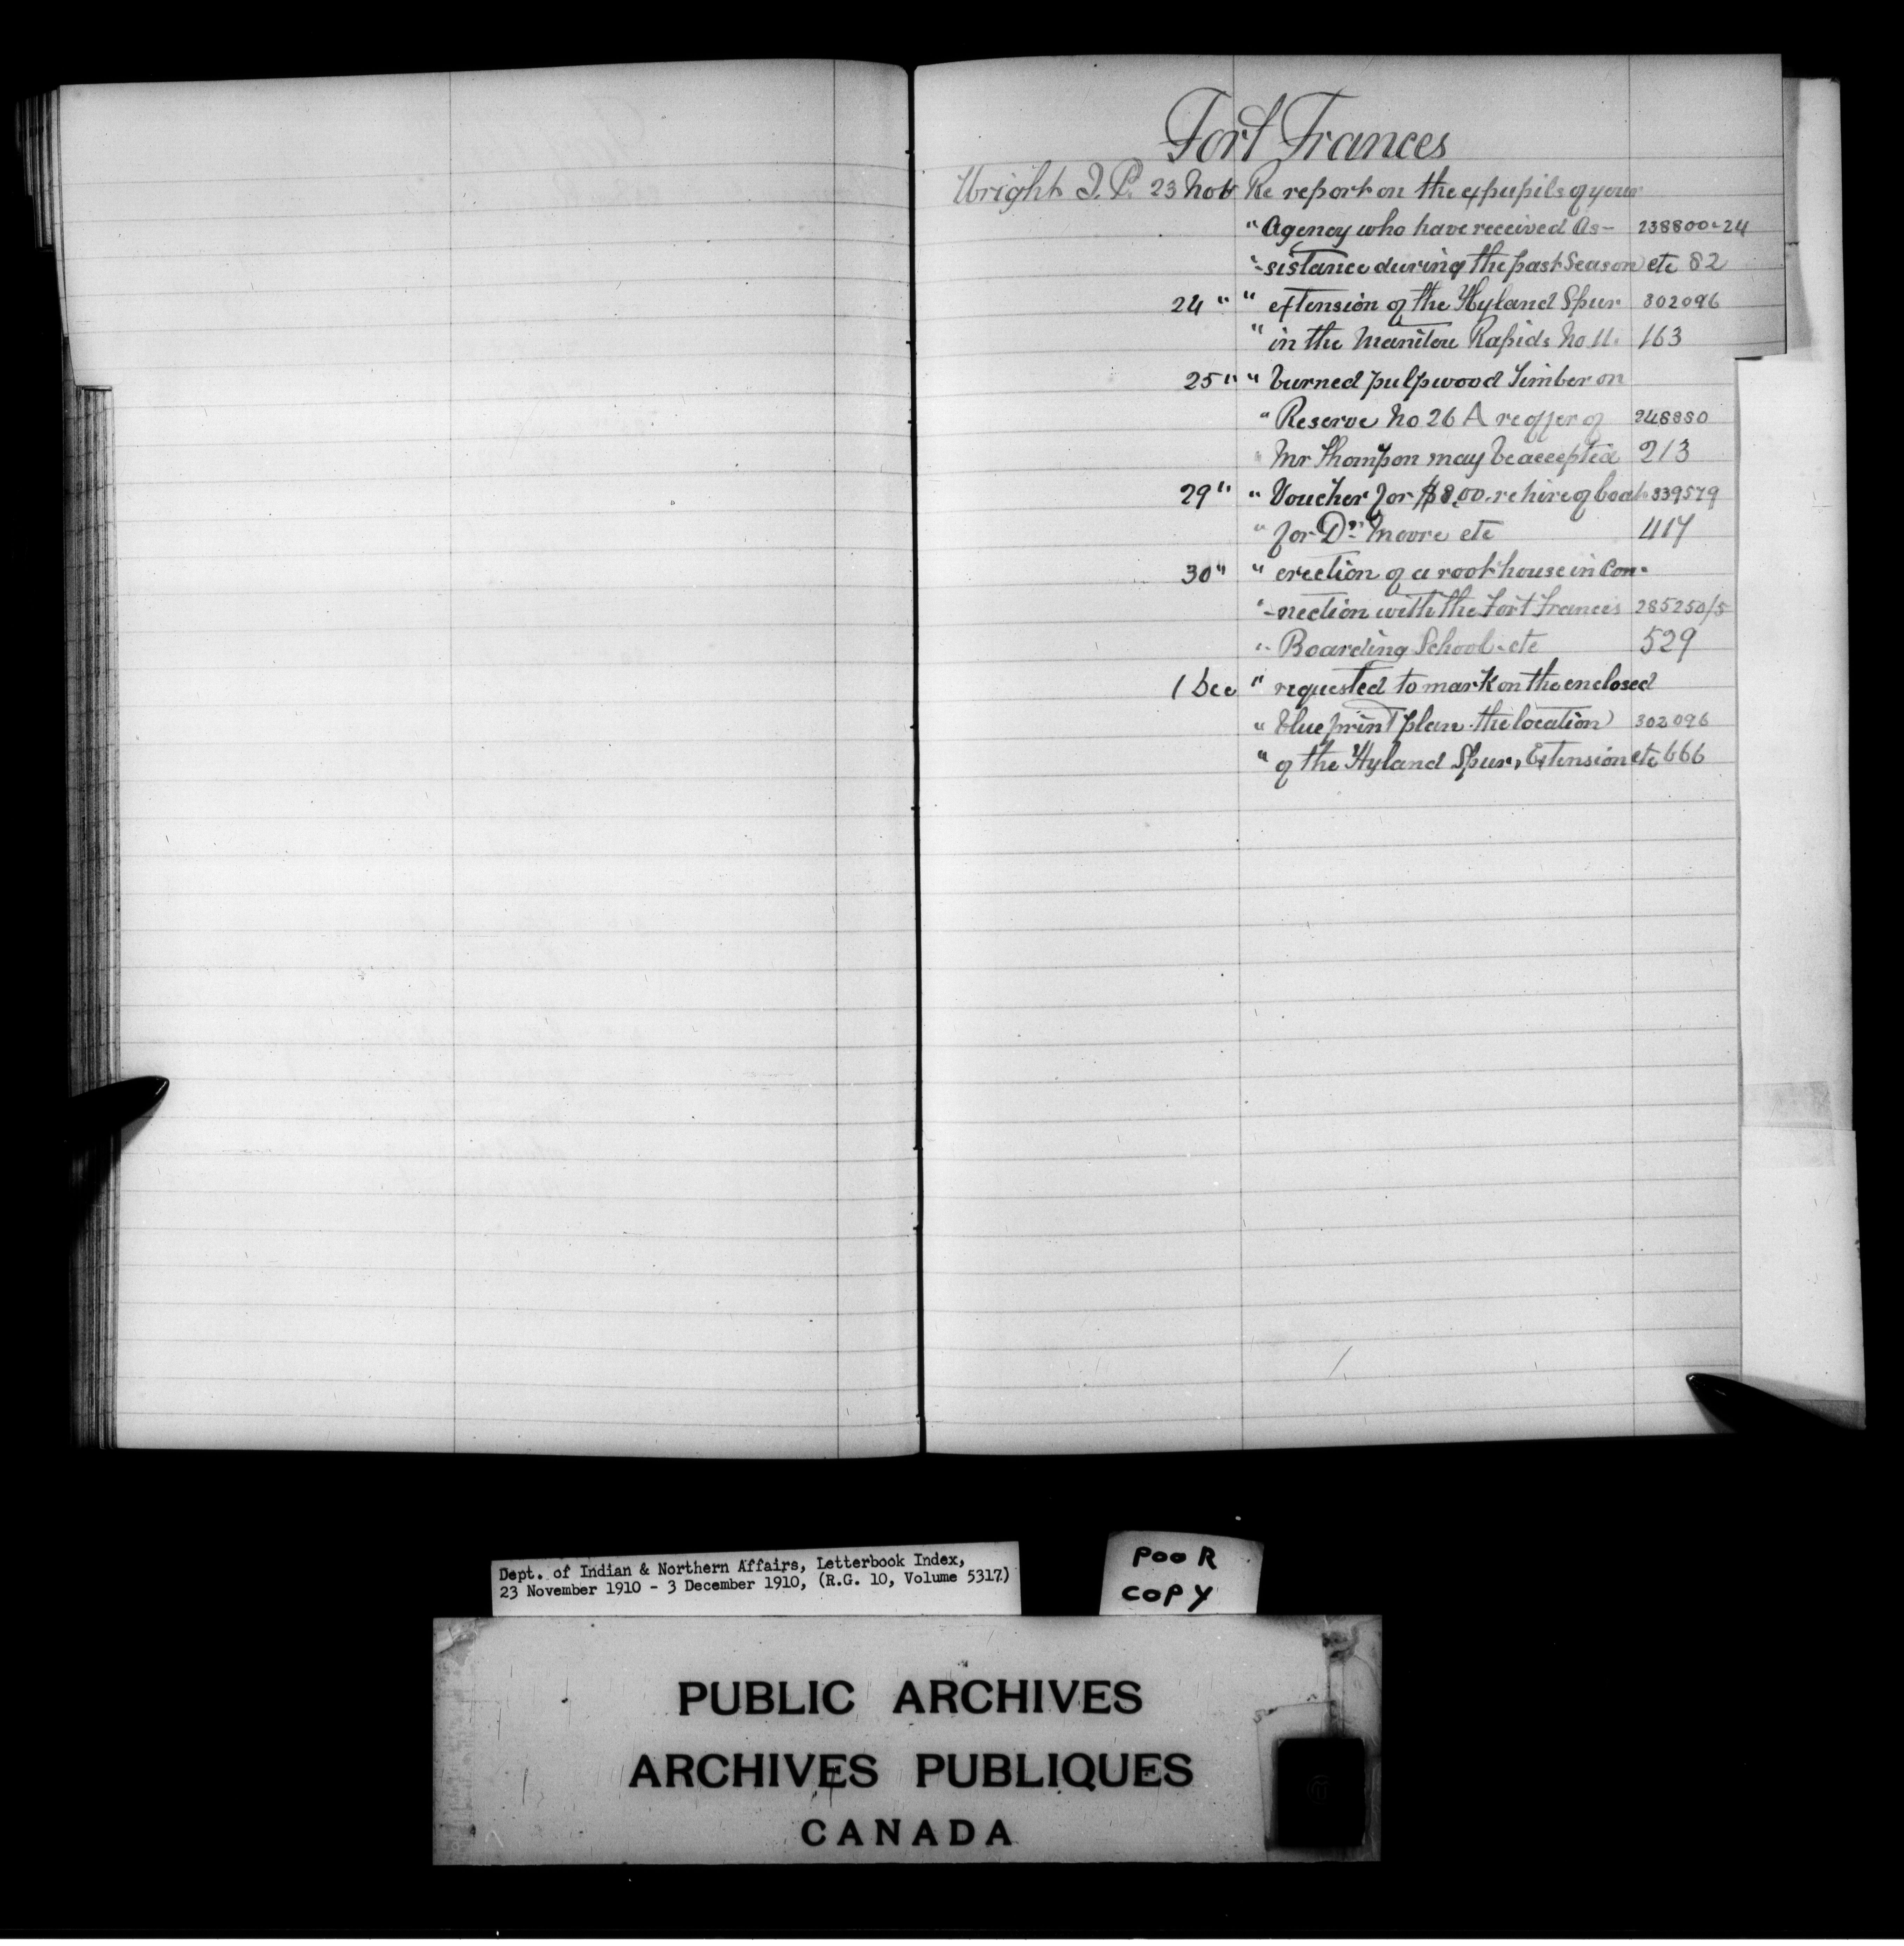 Fort Frances
Wright J. P. 23 Nov Re report on the ex pupils of your
" Agency who have received As- 238800-24
"-sistance during the past Season etc 82
24 " " extension of the Hyland Spur 302096
" in the Manitou Rapids No 11. 163
25 " " burned pulpwood Timber on
" Reserve No 26 A re offer of 248880
" Mr Thompson may be accepted 213
29 " " Voucher for $8.00. re hire of boat 339579
" for Dr. Moore etc 417
30 " " erection of a root house in Con-
"-nection with the Fort Frances 285250/5
" Boarding School etc 529
1 Dec " requested to mark on the enclosed
" blue print plan the location 302096
" of the Hyland Spur, Extension etc 666
Dept. of Indian & Northern Affairs, Letterbook Index,
23 November 1910 - 3 December 1910, (R.G. 10, Volume 5317)
POOR
COPY
PUBLIC ARCHIVES
ARCHIVES PUBLIQUES
CANADA